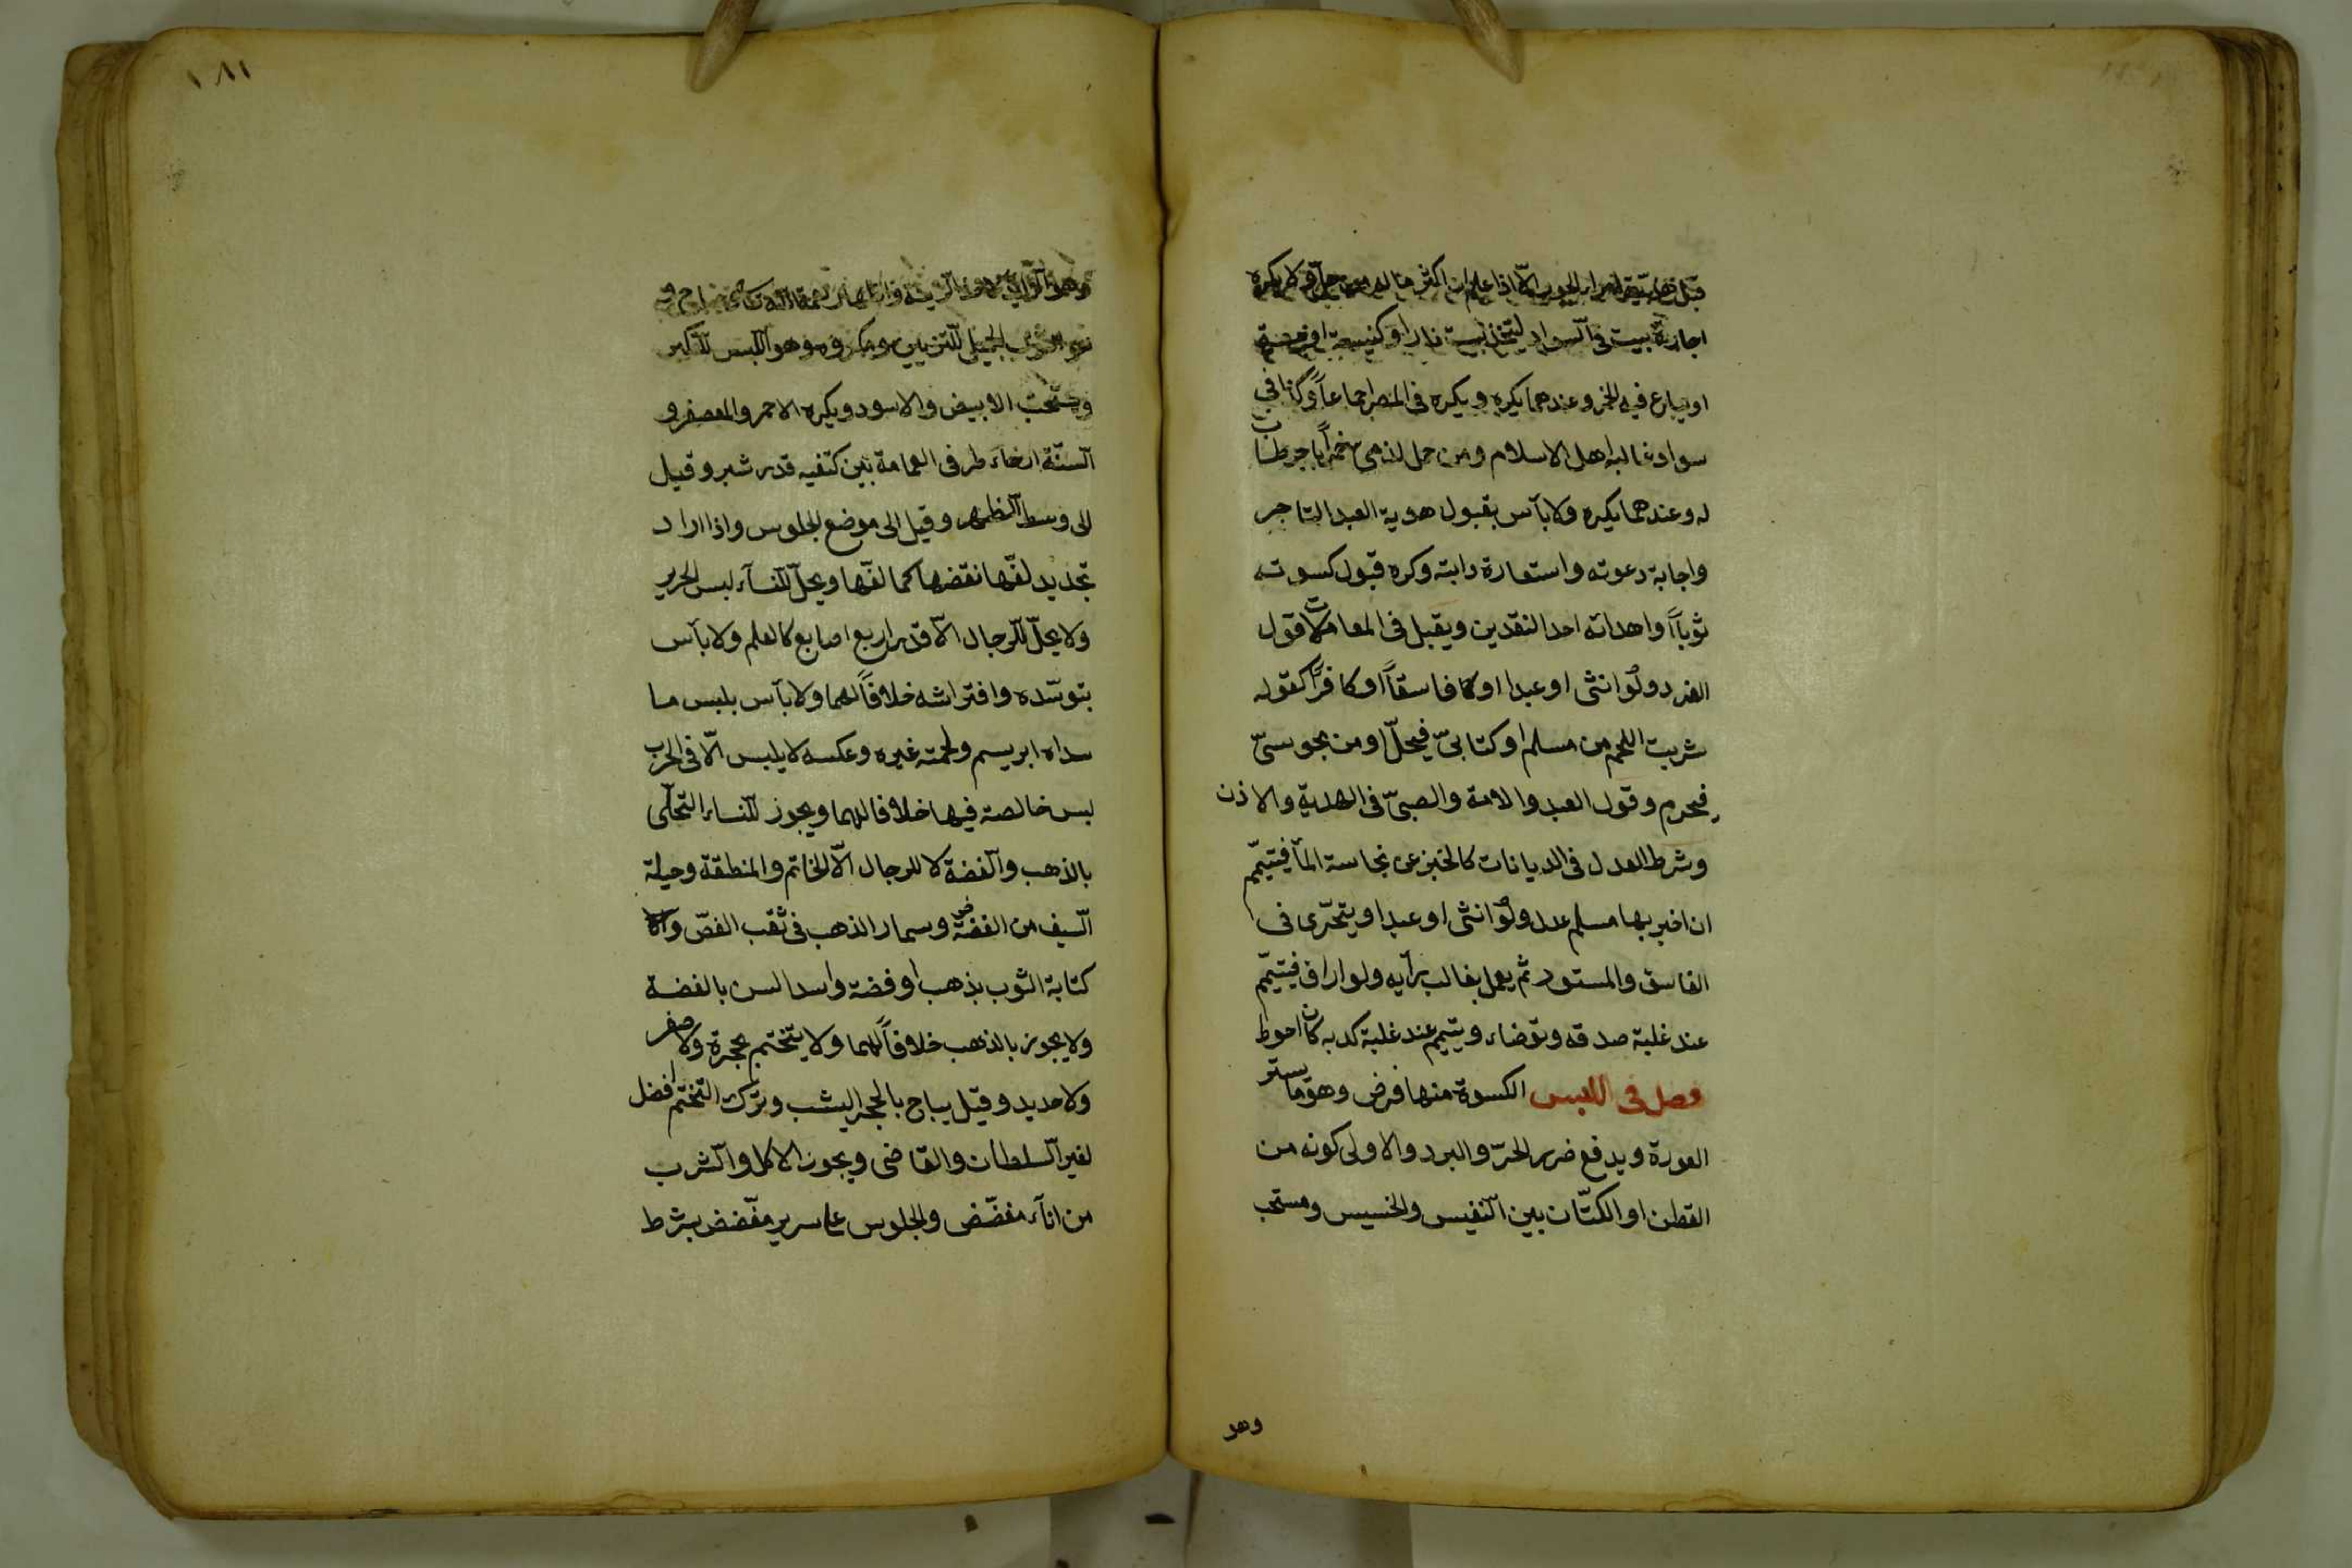 اجارة بيت فى السواد ليتخذ بيت نار او كنيسة او
او يباع فيه الخمر وعندهما يكره ويكره فى المصر اجماعاً وكذا فى
سواد غالبه اهل الاسلام ومن حمل لذمى خمراً باجر طاب
له وعندهما يكره ولا بأس بقبول هدية العبد التاجر
واجابة دعوته واستعارة دابته وكره قبول كسوته
ثوباً واهدائه احد النقدين ويقبل فى المعاملات قول
الفرد ولو انثى او عبدا او فاسقاً او كافراً كقوله
شريت اللحم من مسلم او كتابىّ فيحلّ او من مجوسىّ
فيحرم وقول العبد والامة والصبىّ فى الهدية والاذن
وشرط العدل فى الديانات كالخبز عن نجاسة المآ فيتيمّم
ان اخبر بها مسلم عدل ولو انثى او عبدا ويتحرّى فى
الفاسق والمستور ثم يعمل بغالب رأيه ولو اراق فيتيمّم
عند غلبة صدقه وتوضاء ويتيمم عند غلبة كدبه كان احوط
فصل فى اللبس الكسوة منها فرض وهو ما يستر
العورة ويدفع ضرر الحرّ والبرد والاولى كونه من
القطن او الكتّان بين النفيس والخسيس ومستحب
وهو
١٨١
الثوب الجميل للتزيين ومكروه وهو اللبس للتكبر
ويستحبّ الابيض والاسود ويكره الاحمر والمعصفر و
السنّة ارخاء طرفى العمامة بين كتفيه قدر شبر وقيل
الى وسط الظهر وقيل الى موضع الجلوس واذا اراد
تجديد لفّها نقضها كما لفّها ويحلّ للنسآء لبس الحرير
ولا يحلّ للرجال الّا قدر اربع اصابع كالعلم ولا بأس
بتوسّده وافتراشه خلافاً لهما ولا بأس بلبس ما
سداه ابريسم ولحمته غيره وعكسه لا يلبس الّا فى الحرب
لبس خالصة فيها خلافا لهما ويجوز للنساء التحلّى
بالذهب والفضة لا للرجال الّا الخاتم والمنطقة وحيلة
السيف من الفضّة ومسمار الذهب فى ثقب الفصّ و
كتابة الثوب بذهب او فضة واسد السن بالفضة
ولا يجوز بالذهب خلافاً لهما ولا يتختم بحجرة ولا صفر
ولا حديد وقيل يباح بالحجر اليشب وترك التختّم افضل
لغير السلطان والقاضى ويجوز الاكل والشرب
من انآء مفضّض والجلوس على سرير مفّضض بشرط